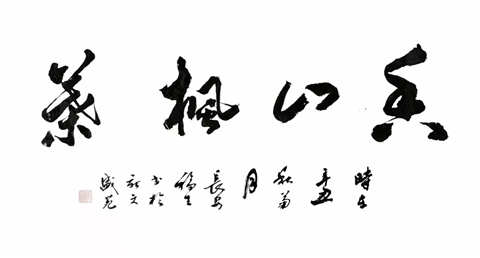 香山楓葉
時在辛丑秋菊月長安書於